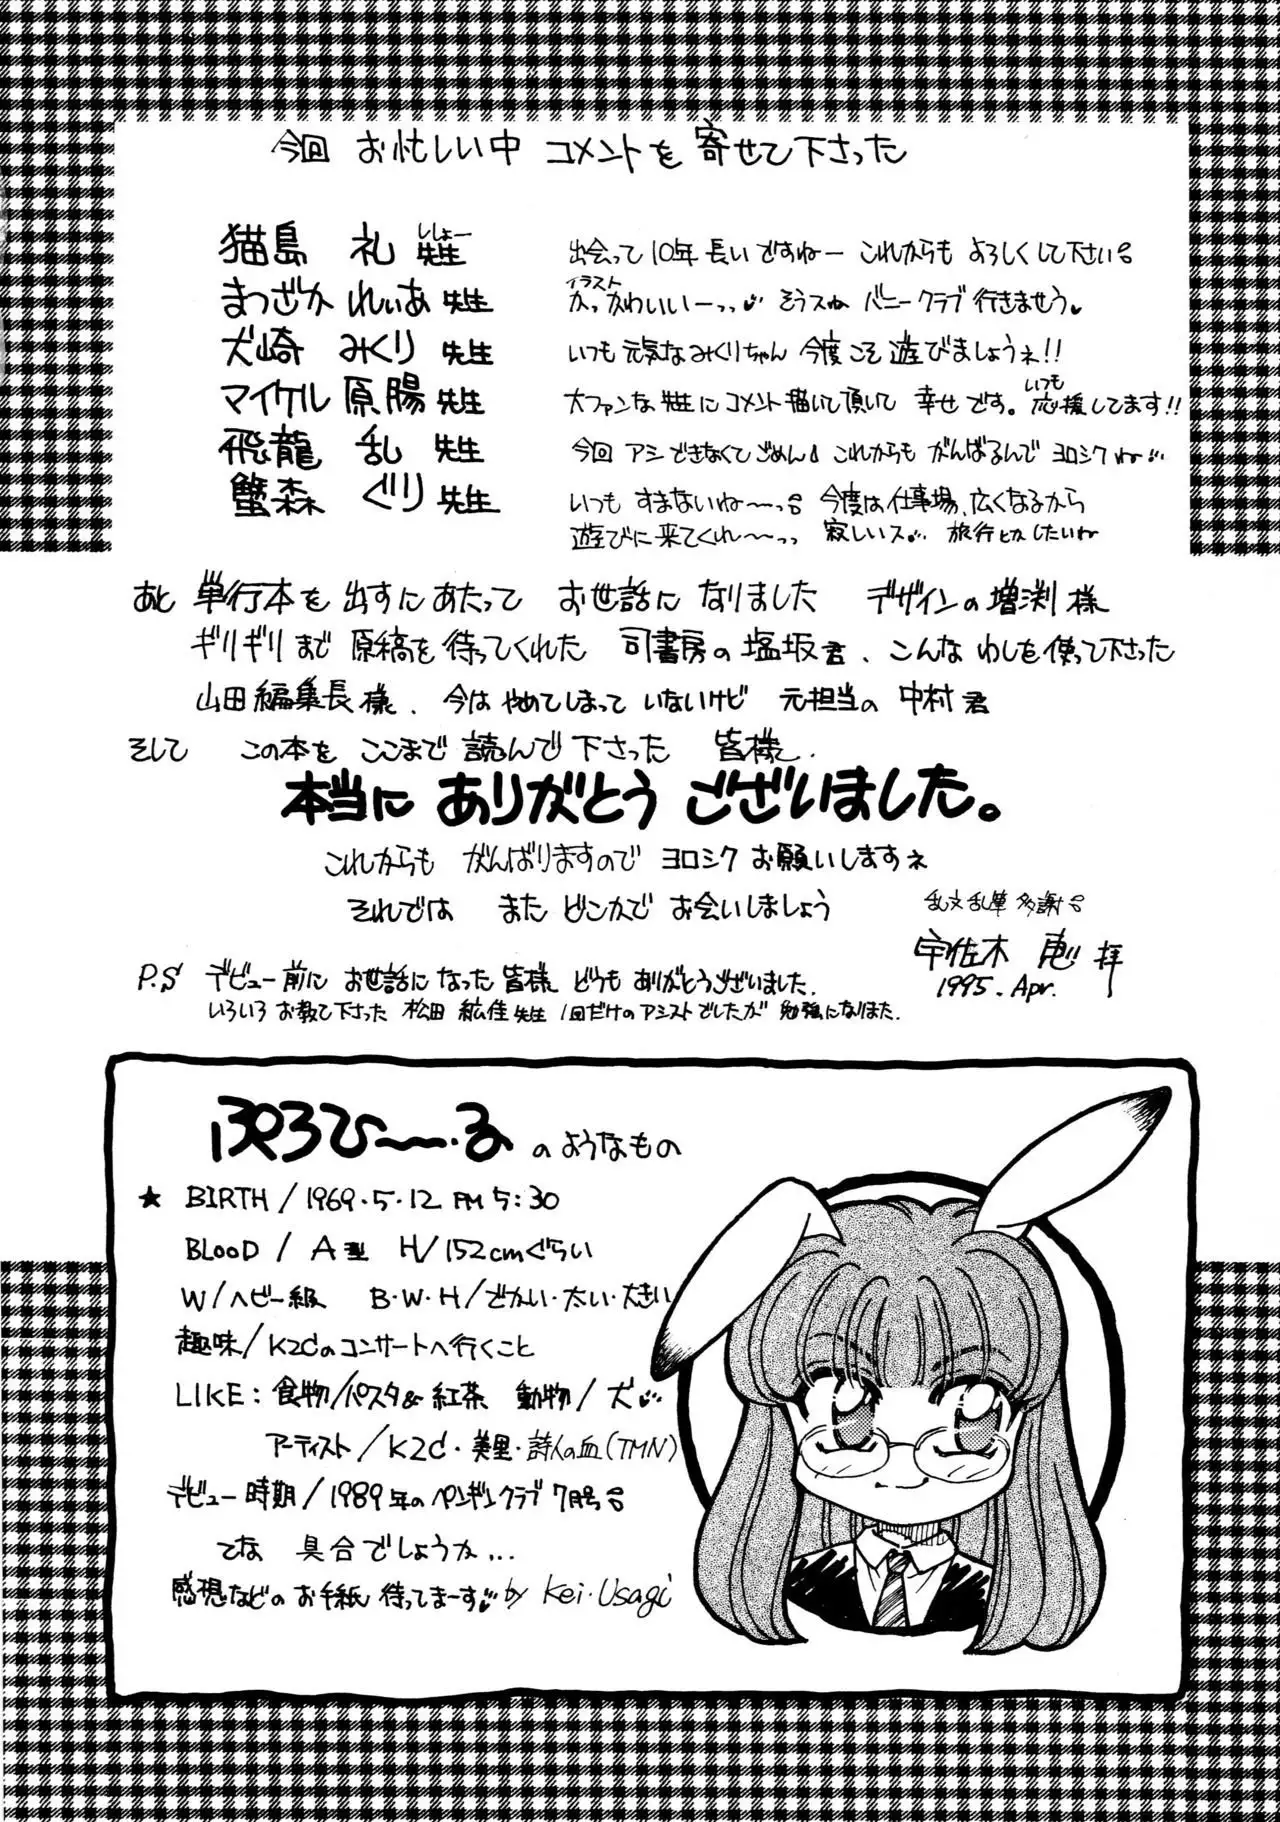 今回 お忙しい中 コメントを 寄せて下さった
猫島 礼 先生 ししょー 出会って10年 長いですねー これからも よろしくして下さい
まつざか れいあ 先生 イラスト かっかわいいーっっ そうスね バニークラブ 行きませう。
犬崎 みくり 先生 いつも 元気な みくりちゃん 今度こそ 遊びましょうネ!!
マイケル 原腸 先生 大ファンな 先生に コメント描いて頂いて 幸せです。いつも 応援してます!!
飛龍 乱 先生 今回 アシできなくてごめん これからも がんばるんで ヨロシクね
蟹森 ぐり 先生 いつも すまないね〜〜っ 今度は仕事場、広くなるから
遊びに来てくれ〜〜っっ 寂しいス… 旅行とかしたいね
あと 単行本を 出すにあたって お世話に なりました デザインの 増渕 様
ギリギリまで 原稿を 待ってくれた 司書房の 塩坂君、こんな わしを 使って下さった
山田 編集長様、今は やめてしまって いないけど 元担当の 中村君
そして この本を ここまで 読んで 下さった 皆様、
本当に ありがとう ございました。
これからも がんばりますので ヨロシク お願いしますネ
それでは また どこかで お会いしましょう
乱文乱筆 多謝
宇佐木 恵 拝
1995. Apr.
P.S デビュー前に お世話になった 皆様 どうも ありがとうございました。
いろいろ お教え下さった 松田 紘佳 先生 1回だけの アシストでしたが 勉強になりました。
ぷろひ〜〜・る のようなもの
★ BIRTH / 1969・5・12 PM 5:30
BLOOD / A型 H/152cmぐらい
W/ヘビー級 B・W・H/でかい・太い・大きい
趣味/K2Cのコンサートへ行くこと
LIKE: 食物/パスタ& 紅茶 動物/犬
アーティスト/K2C・美里・詩人の血(TMN)
デビュー時期/1989年の ペンギンクラブ 7月号
てな 具合でしょうか…
感想などの お手紙 待ってまーす by Kei・Usagi